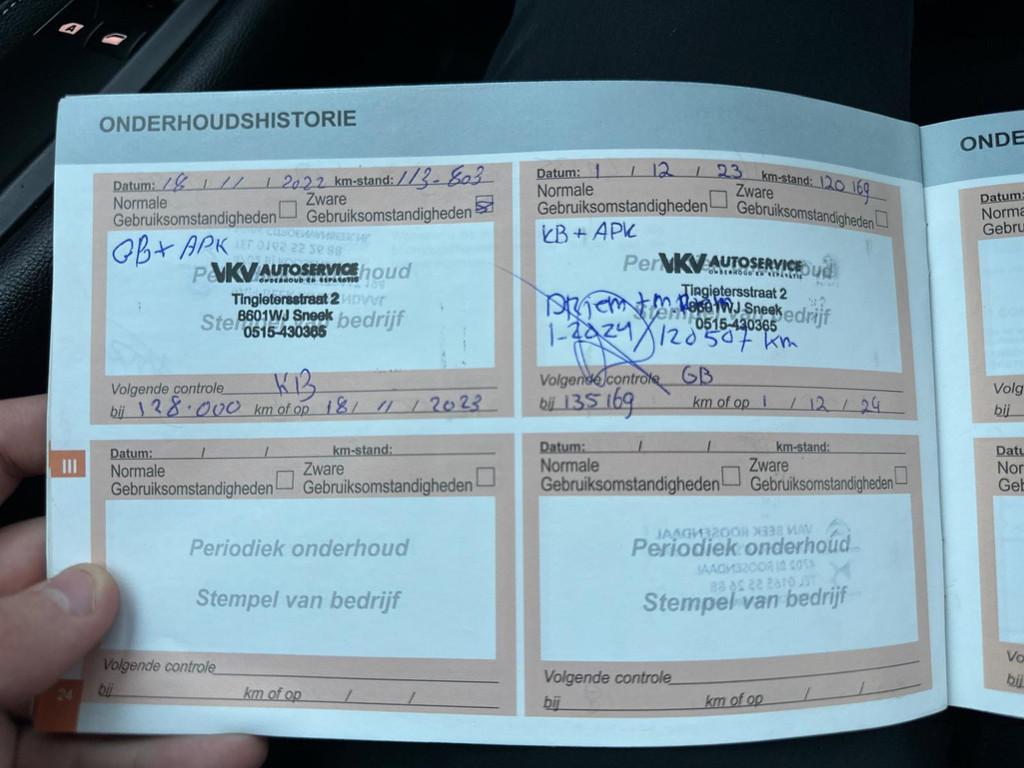 ONDERHOUDSHISTORIE
Datum: 18 / 11 / 2022 km-stand: 113-803
Normale
Gebruiksomstandigheden
Zware
Gebruiksomstandigheden
GB + APK
Periodiek onderhoud
VKV AUTOSERVICE
ONDERHOUD EN REPARATIE
Tingietersstraat 2
8601WJ Sneek
Stempel van bedrijf
0515-430365
Volgende controle KB
bij 128.000 km of op 18 / 11 / 2023
Datum: 1 / 12 / 23 km-stand: 120 169
Normale
Gebruiksomstandigheden
Zware
Gebruiksomstandigheden
KB + APK
Periodiek onderhoud
VKV AUTOSERVICE
ONDERHOUD EN REPARATIE
Tingietersstraat 2
8601WJ Sneek
Stempel van bedrijf
0515-430365
1-2024 / 120507 km
Volgende controle GB
bij 135169 km of op 1 / 12 / 24
III
Datum: / / km-stand:
Normale
Gebruiksomstandigheden
Zware
Gebruiksomstandigheden
Periodiek onderhoud
Stempel van bedrijf
Volgende controle
bij km of op / /
Datum: / / km-stand:
Normale
Gebruiksomstandigheden
Zware
Gebruiksomstandigheden
Periodiek onderhoud
Stempel van bedrijf
Volgende controle
bij km of op / /
24
ONDE
Datum:
Norma
Gebru
Volg
bij
Datu
Nor
Geb
Vo
bij